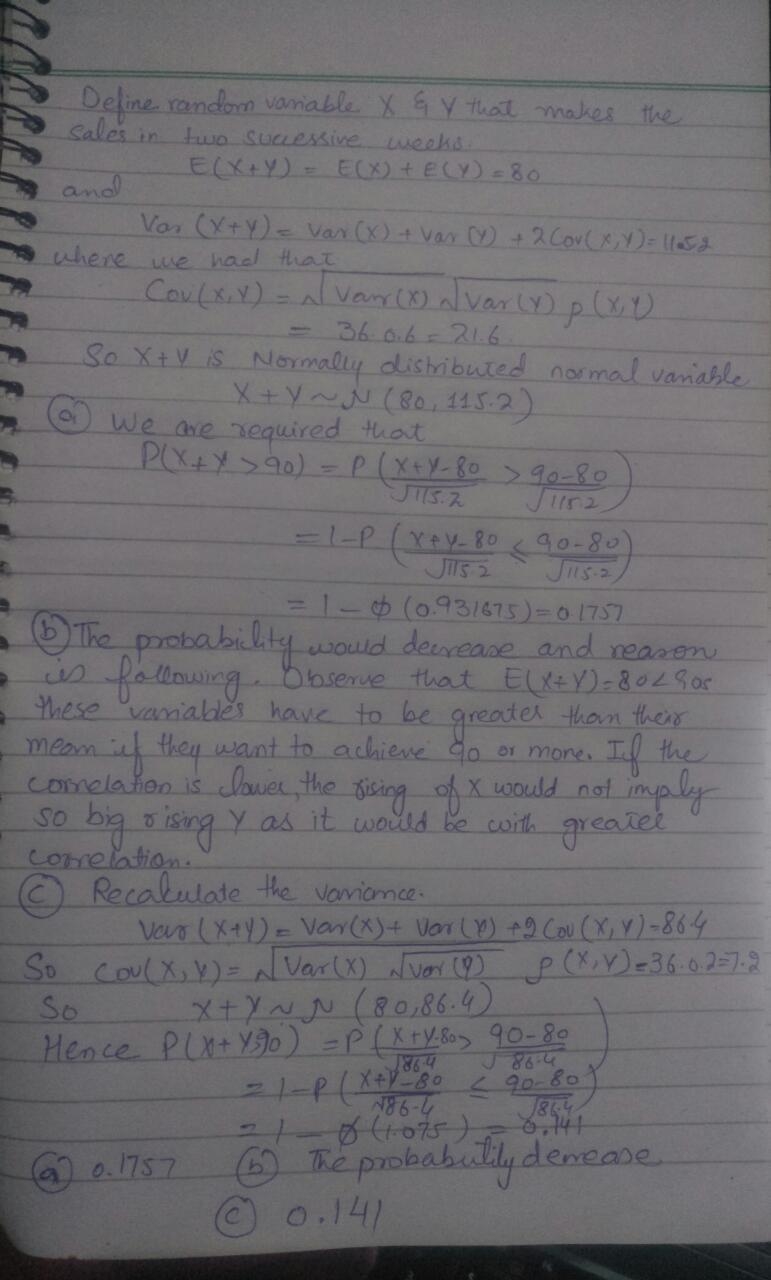 Define random variable X & Y that makes the
sales in two successive weeks.
E(X+Y) = E(X) + E(Y) = 80
and
Var (X+Y) = Var(X) + Var (Y) + 2 Cov(X,Y) = 115.2
where we had that
Cov(X,Y) = √Var(X) √Var(Y) ρ(X,Y)
= 36.0.6 = 21.6
So X+Y is Normally distributed normal variable
X+Y ~ N (80, 115.2)
(a) We are required that
P(X+Y > 90) = P (X+Y-80/√115.2 > 90-80/√115.2)
= 1-P (X+Y-80/√115.2 ≤ 90-80/√115.2)
= 1 - φ (0.931675) = 0.1757
(b) The probability would decrease and reason
is following. Observe that E(X+Y)=80<90s
these variables have to be greater than their
mean if they want to achieve 90 or more. If the
correlation is lower, the rising of X would not imply
so big rising Y as it would be with greater
correlation.
(c) Recalculate the variance.
Var (X+Y) = Var(X) + Var (Y) + 2 Cov (X,Y) = 86.4
So Cov(X,Y) = √Var(X) √Var(Y) ρ(X,Y) = 36.0.2=7.2
So X+Y ~ N (80,86.4)
Hence P(X+Y>90) = P (X+Y-80/√86.4 > 90-80/√86.4)
= 1-P (X+Y-80/√86.4 ≤ 90-80/√86.4)
= 1 - φ (1.075) = 0.141
(a) 0.1757 (b) The probability decrease
(c) 0.141